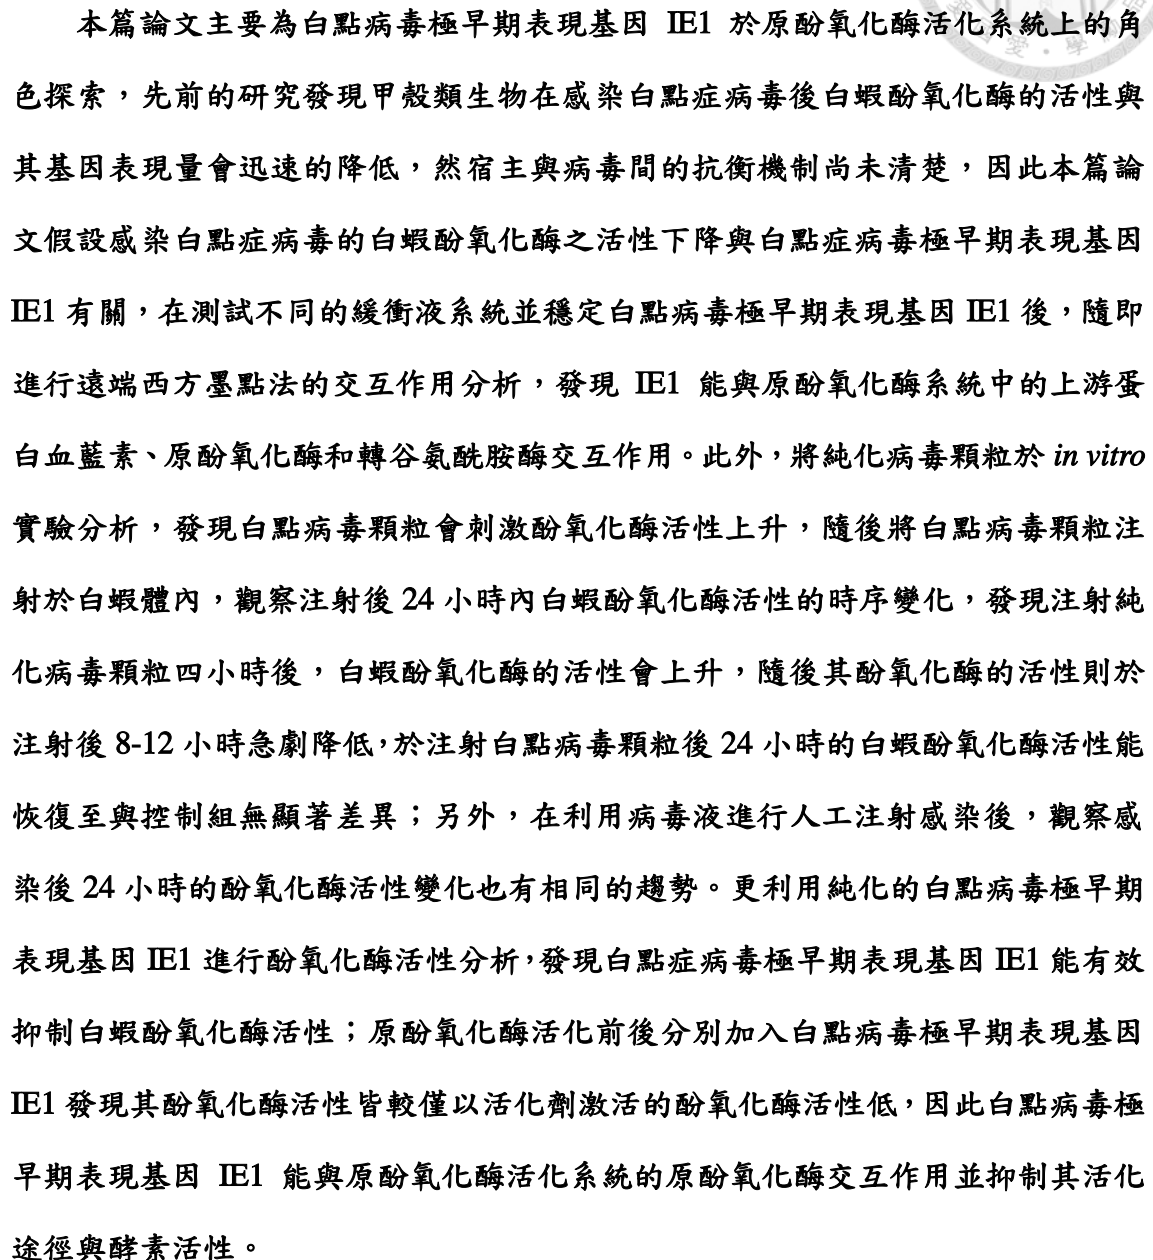 本篇論文主要為白點病毒極早期表現基因 IE1 於原酚氧化酶活化系統上的角
色探索，先前的研究發現甲殼類生物在感染白點症病毒後白蝦酚氧化酶的活性與
其基因表現量會迅速的降低，然宿主與病毒間的抗衡機制尚未清楚，因此本篇論
文假設感染白點症病毒的白蝦酚氧化酶之活性下降與白點症病毒極早期表現基因
IE1 有關，在測試不同的緩衝液系統並穩定白點病毒極早期表現基因 IE1 後，隨即
進行遠端西方墨點法的交互作用分析，發現 IE1 能與原酚氧化酶系統中的上游蛋
白血藍素、原酚氧化酶和轉谷氨酰胺酶交互作用。此外，將純化病毒顆粒於 in vitro
實驗分析，發現白點病毒顆粒會刺激酚氧化酶活性上升，隨後將白點病毒顆粒注
射於白蝦體內，觀察注射後 24 小時內白蝦酚氧化酶活性的時序變化，發現注射純
化病毒顆粒四小時後，白蝦酚氧化酶的活性會上升，隨後其酚氧化酶的活性則於
注射後 8-12 小時急劇降低，於注射白點病毒顆粒後 24 小時的白蝦酚氧化酶活性能
恢復至與控制組無顯著差異；另外，在利用病毒液進行人工注射感染後，觀察感
染後 24 小時的酚氧化酶活性變化也有相同的趨勢。更利用純化的白點病毒極早期
表現基因 IE1 進行酚氧化酶活性分析，發現白點症病毒極早期表現基因 IE1 能有效
抑制白蝦酚氧化酶活性；原酚氧化酶活化前後分別加入白點病毒極早期表現基因
IE1 發現其酚氧化酶活性皆較僅以活化劑激活的酚氧化酶活性低，因此白點病毒極
早期表現基因 IE1 能與原酚氧化酶活化系統的原酚氧化酶交互作用並抑制其活化
途徑與酵素活性。
愛・學